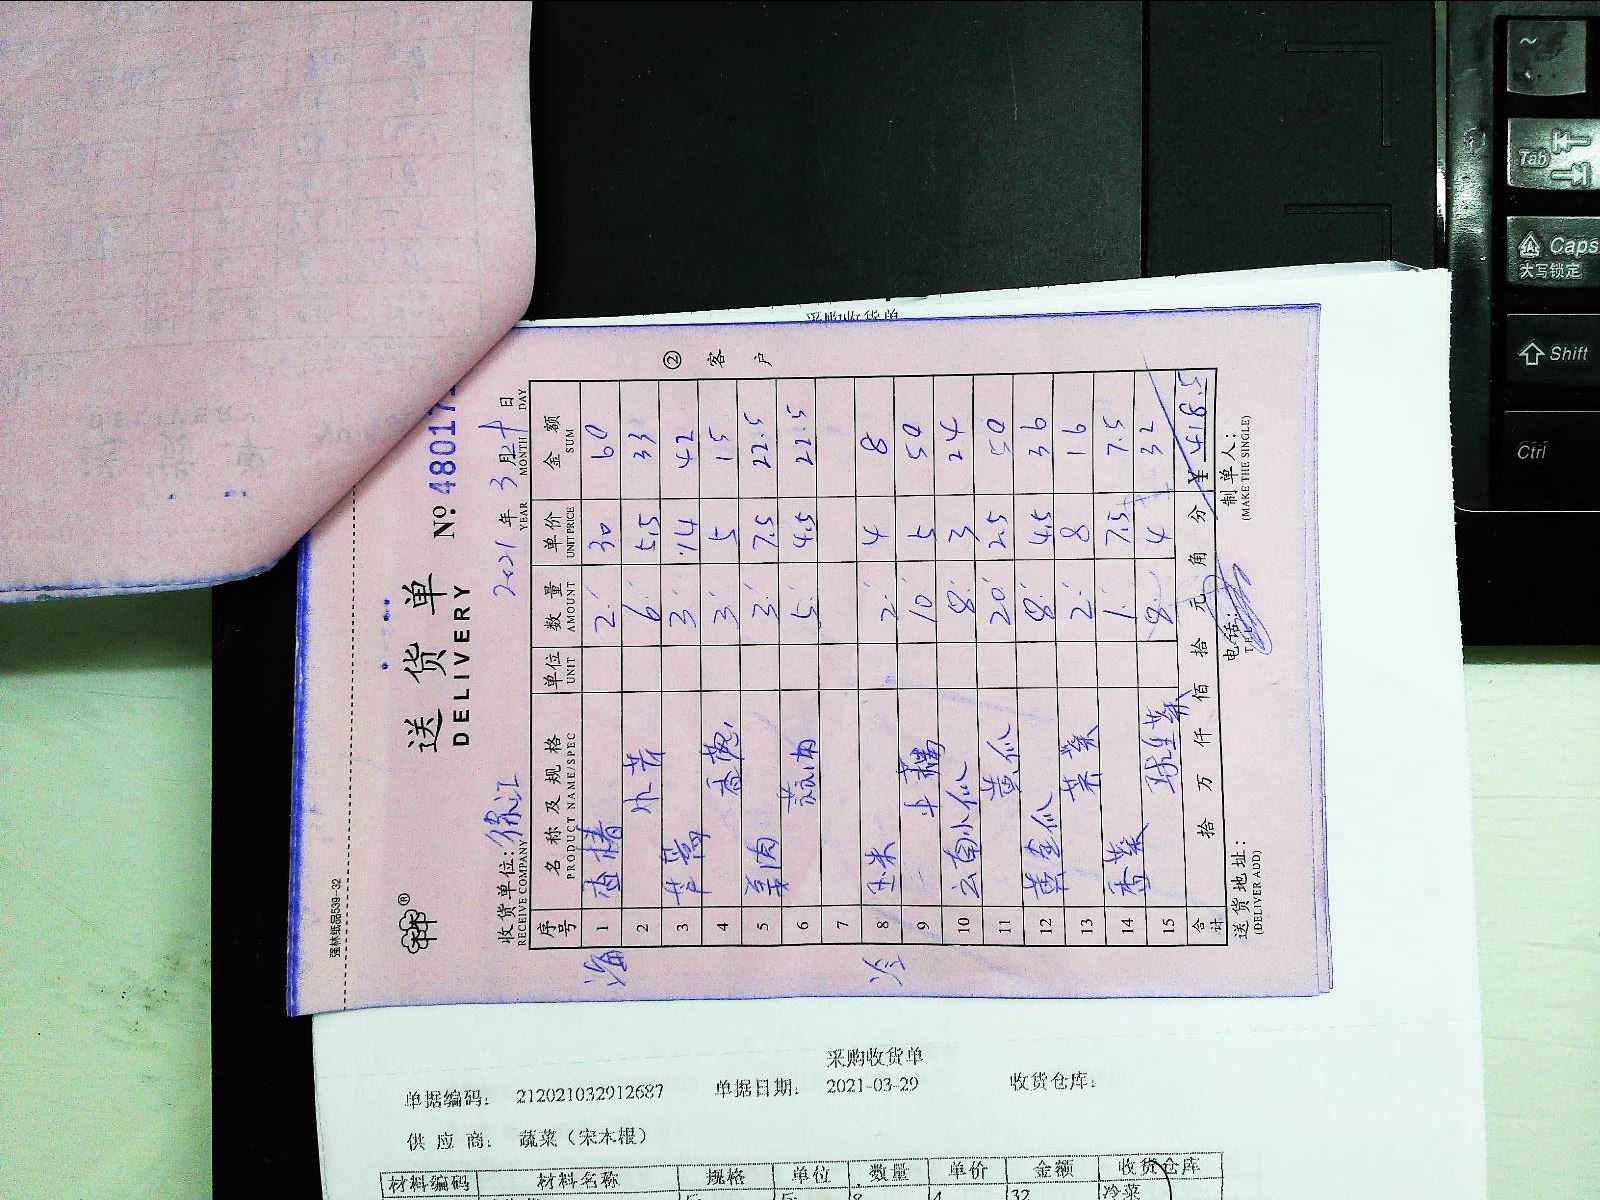 强林纸品539-32
送货单
DELIVERY
№ 48017
收货单位: 徐江
RECEIVE COMPANY
2021 年 3 月 日
YEAR MONTH DAY
序号 名称及规格 PRODUCT NAME/SPEC 单位 UNIT 数量 AMOUNT 单价 UNIT PRICE 金额 SUM
1 香椿 2 30 60
2 6 5.5 33
3 3 14 42
4 香葱 3 5 15
5 3 7.5 22.5
6 5 4.5 22.5
7
8 玉米 2 4 8
9 10 5 50
10 云南小瓜 8 3 24
11 黄瓜 20 2.5 50
12 黄金瓜 8 4.5 36
13 2 8 16
14 香菜 1 7.5 7.5
15 球生菜 8 4 32
合计 拾 万 仟 佰 拾 元 角 分 ¥ 418.5
送货地址:
(DELIVER ADD)
电话:
制单人:
(MAKE THE SINGLE)
② 客户
采购收货单
采购收货单
单据编码: 212021032912687 单据日期: 2021-03-29 收货仓库:
供应商: 蔬菜(宋木根)
材料编码 材料名称 规格 单位 数量 单价 金额 收货仓库
8 4 32 冷菜
~
Tab
Caps
大写锁定
Shift
Ctrl